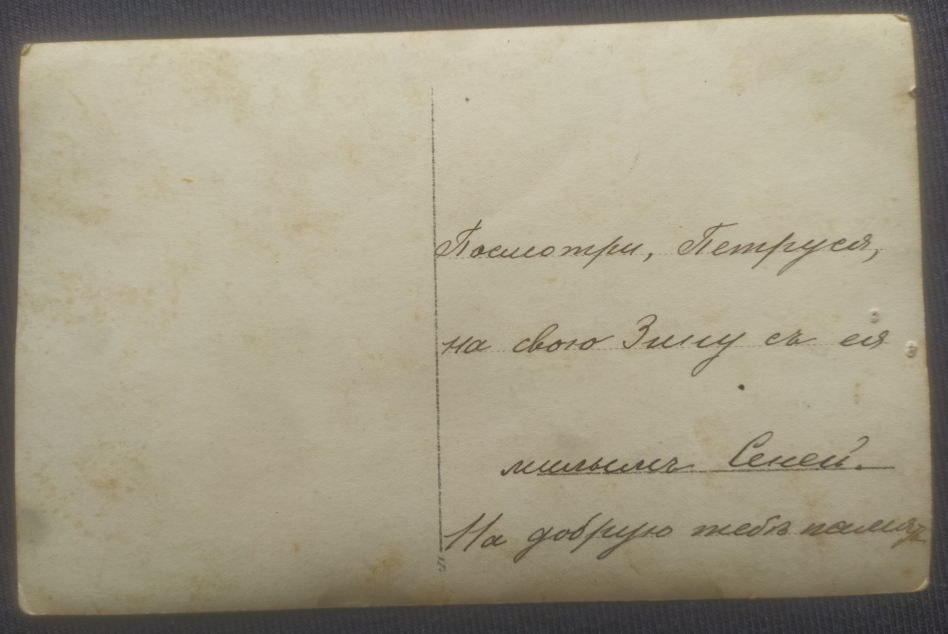 Посмотри, Петруся,
на свою Зину съ ея
милымъ Сеней.
На добрую тебѣ память